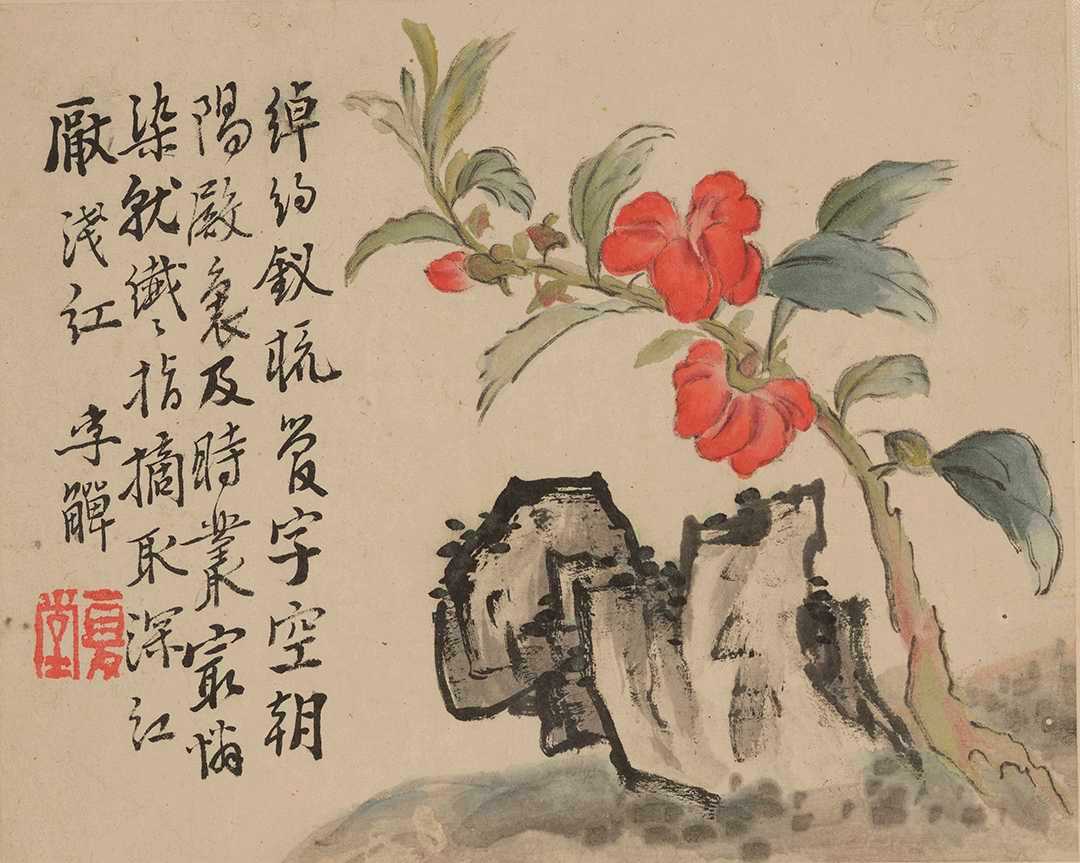 綽約釵梳字空朝
陽殿裏及時叢寂憐
染就纖々指摘取深紅
厭淺紅 李觶
复堂